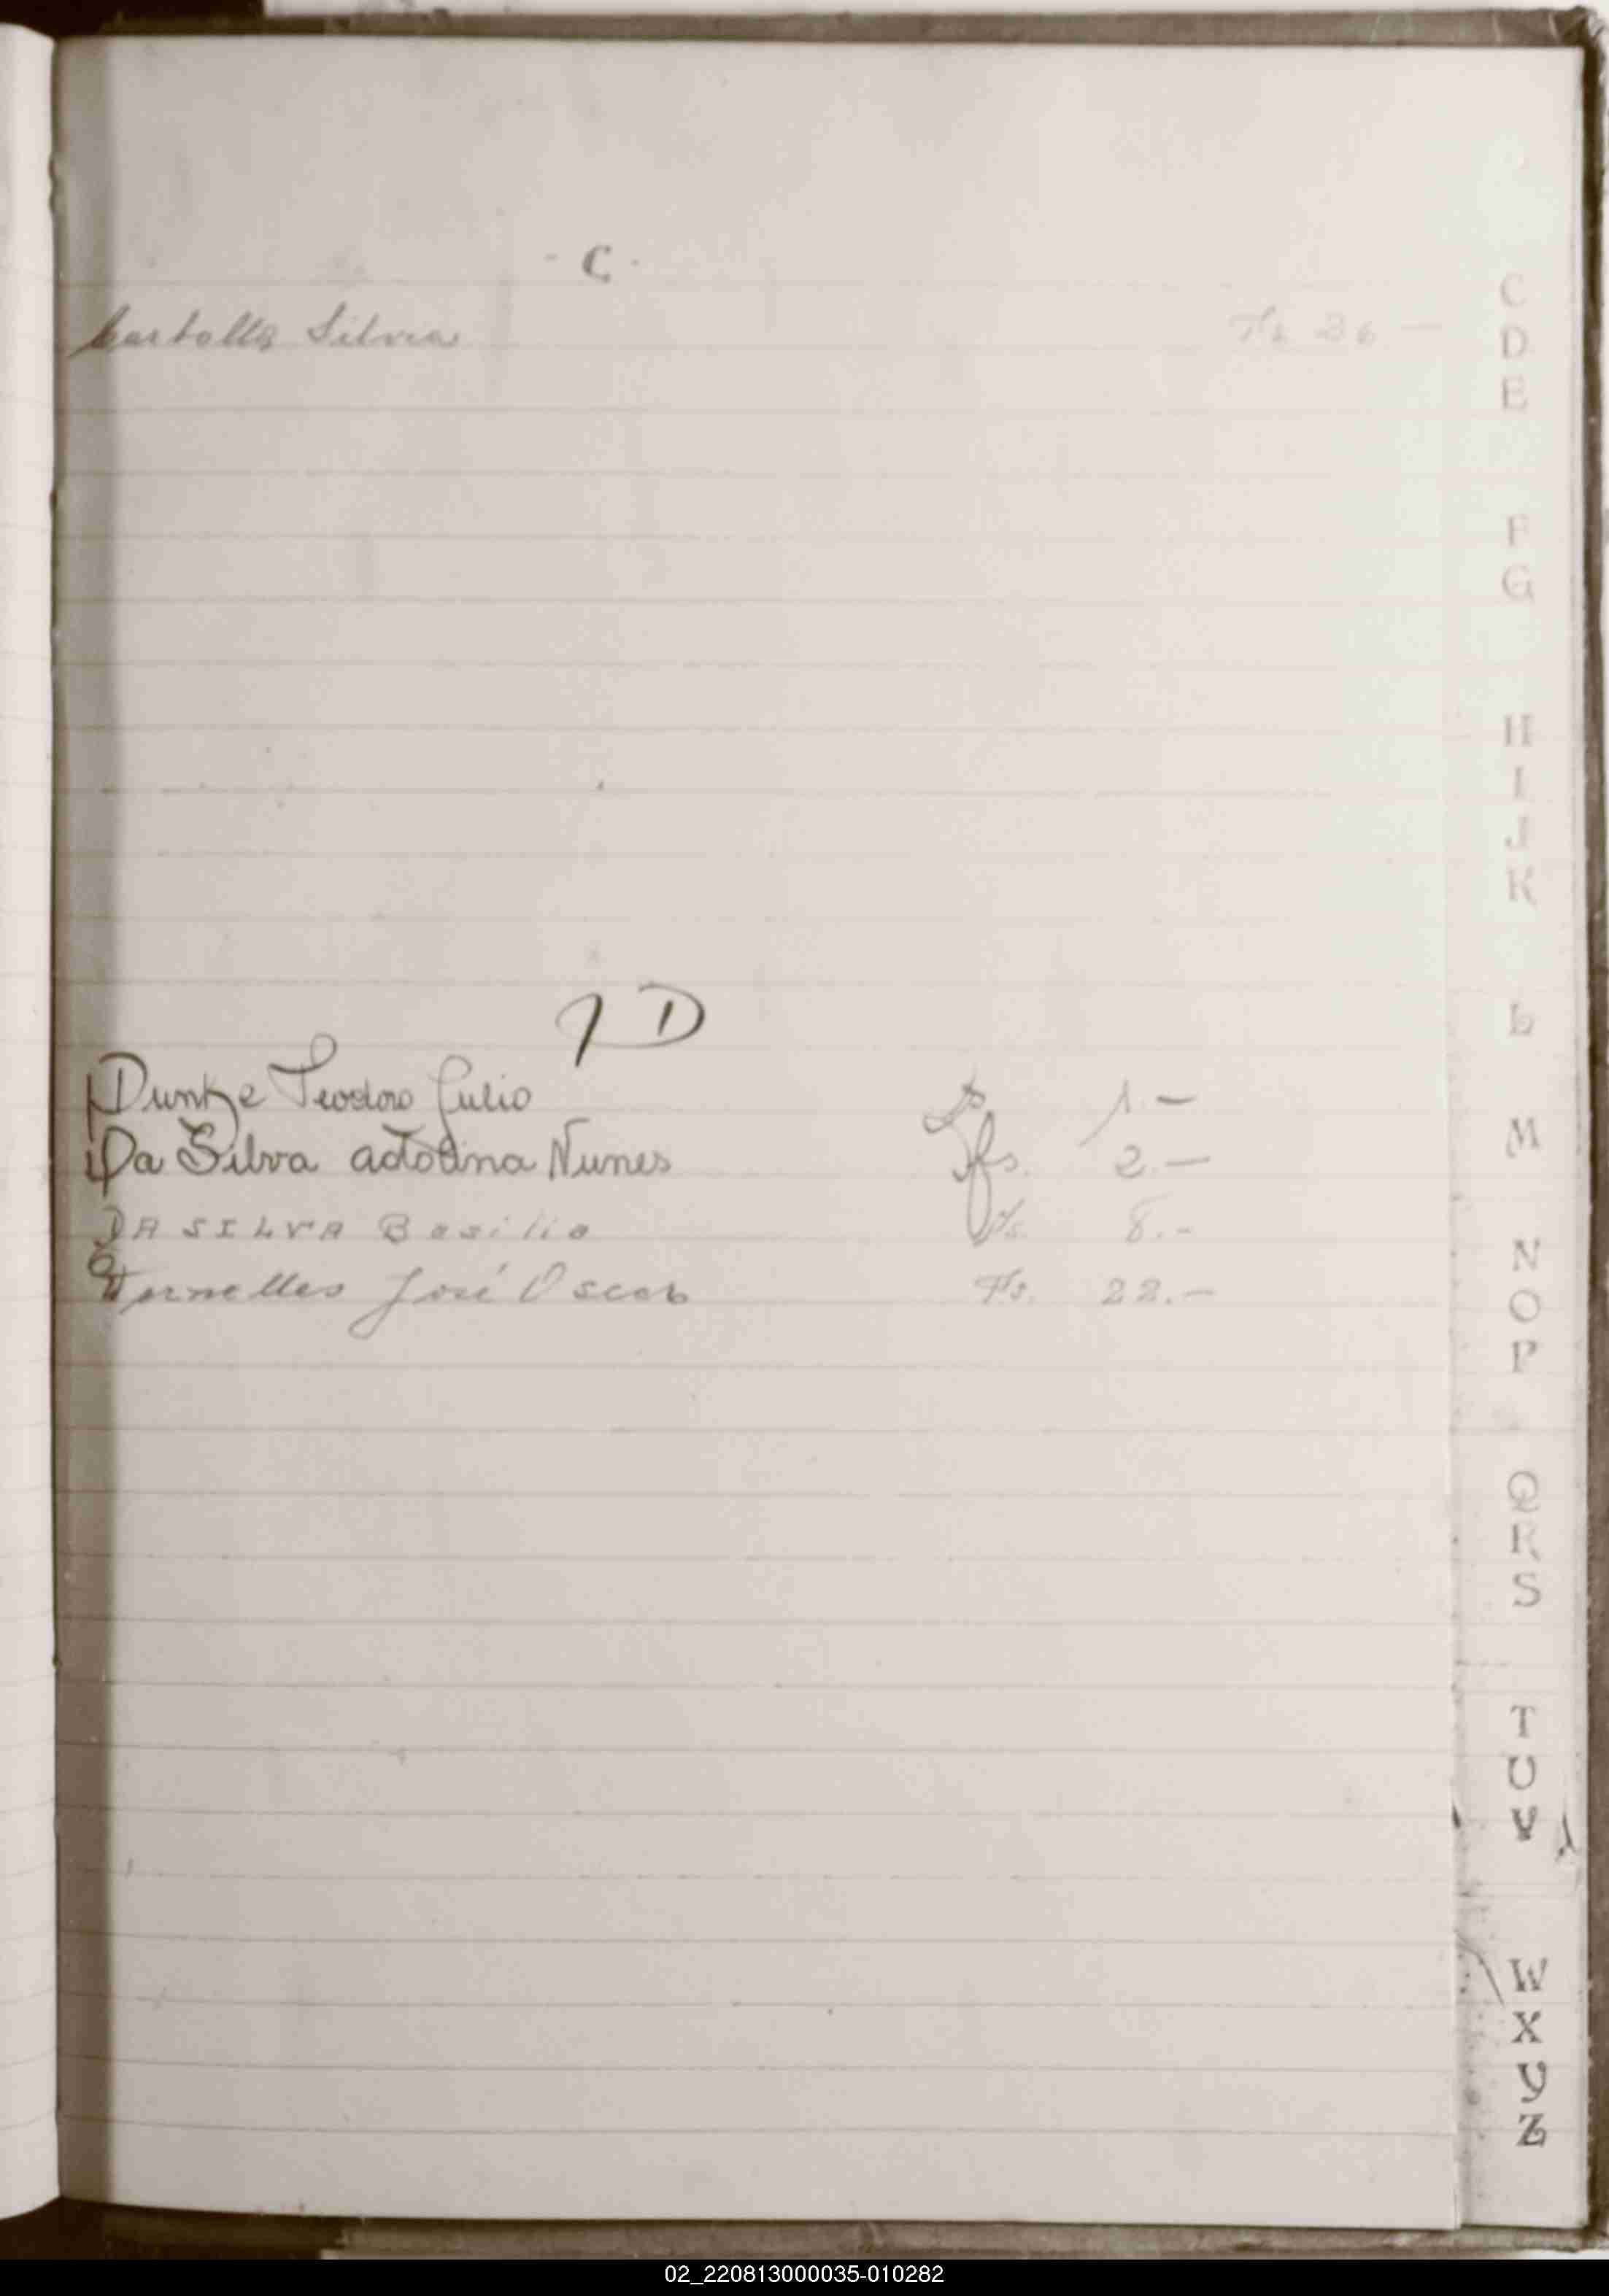 - C -
Carballo Silvia Fs 26 —
D
Duntze Teodoro Julio Fs 1.—
Da Silva Adolina Nunes Fs. 2.—
DA SILVA Basilio Fs. 8.-
José Oscar Fs. 22.-
C
D
E
F
G
H
I
J
K
L
M
N
O
P
Q
R
S
T
U
V
W
X
Y
Z
02_220813000035-010282